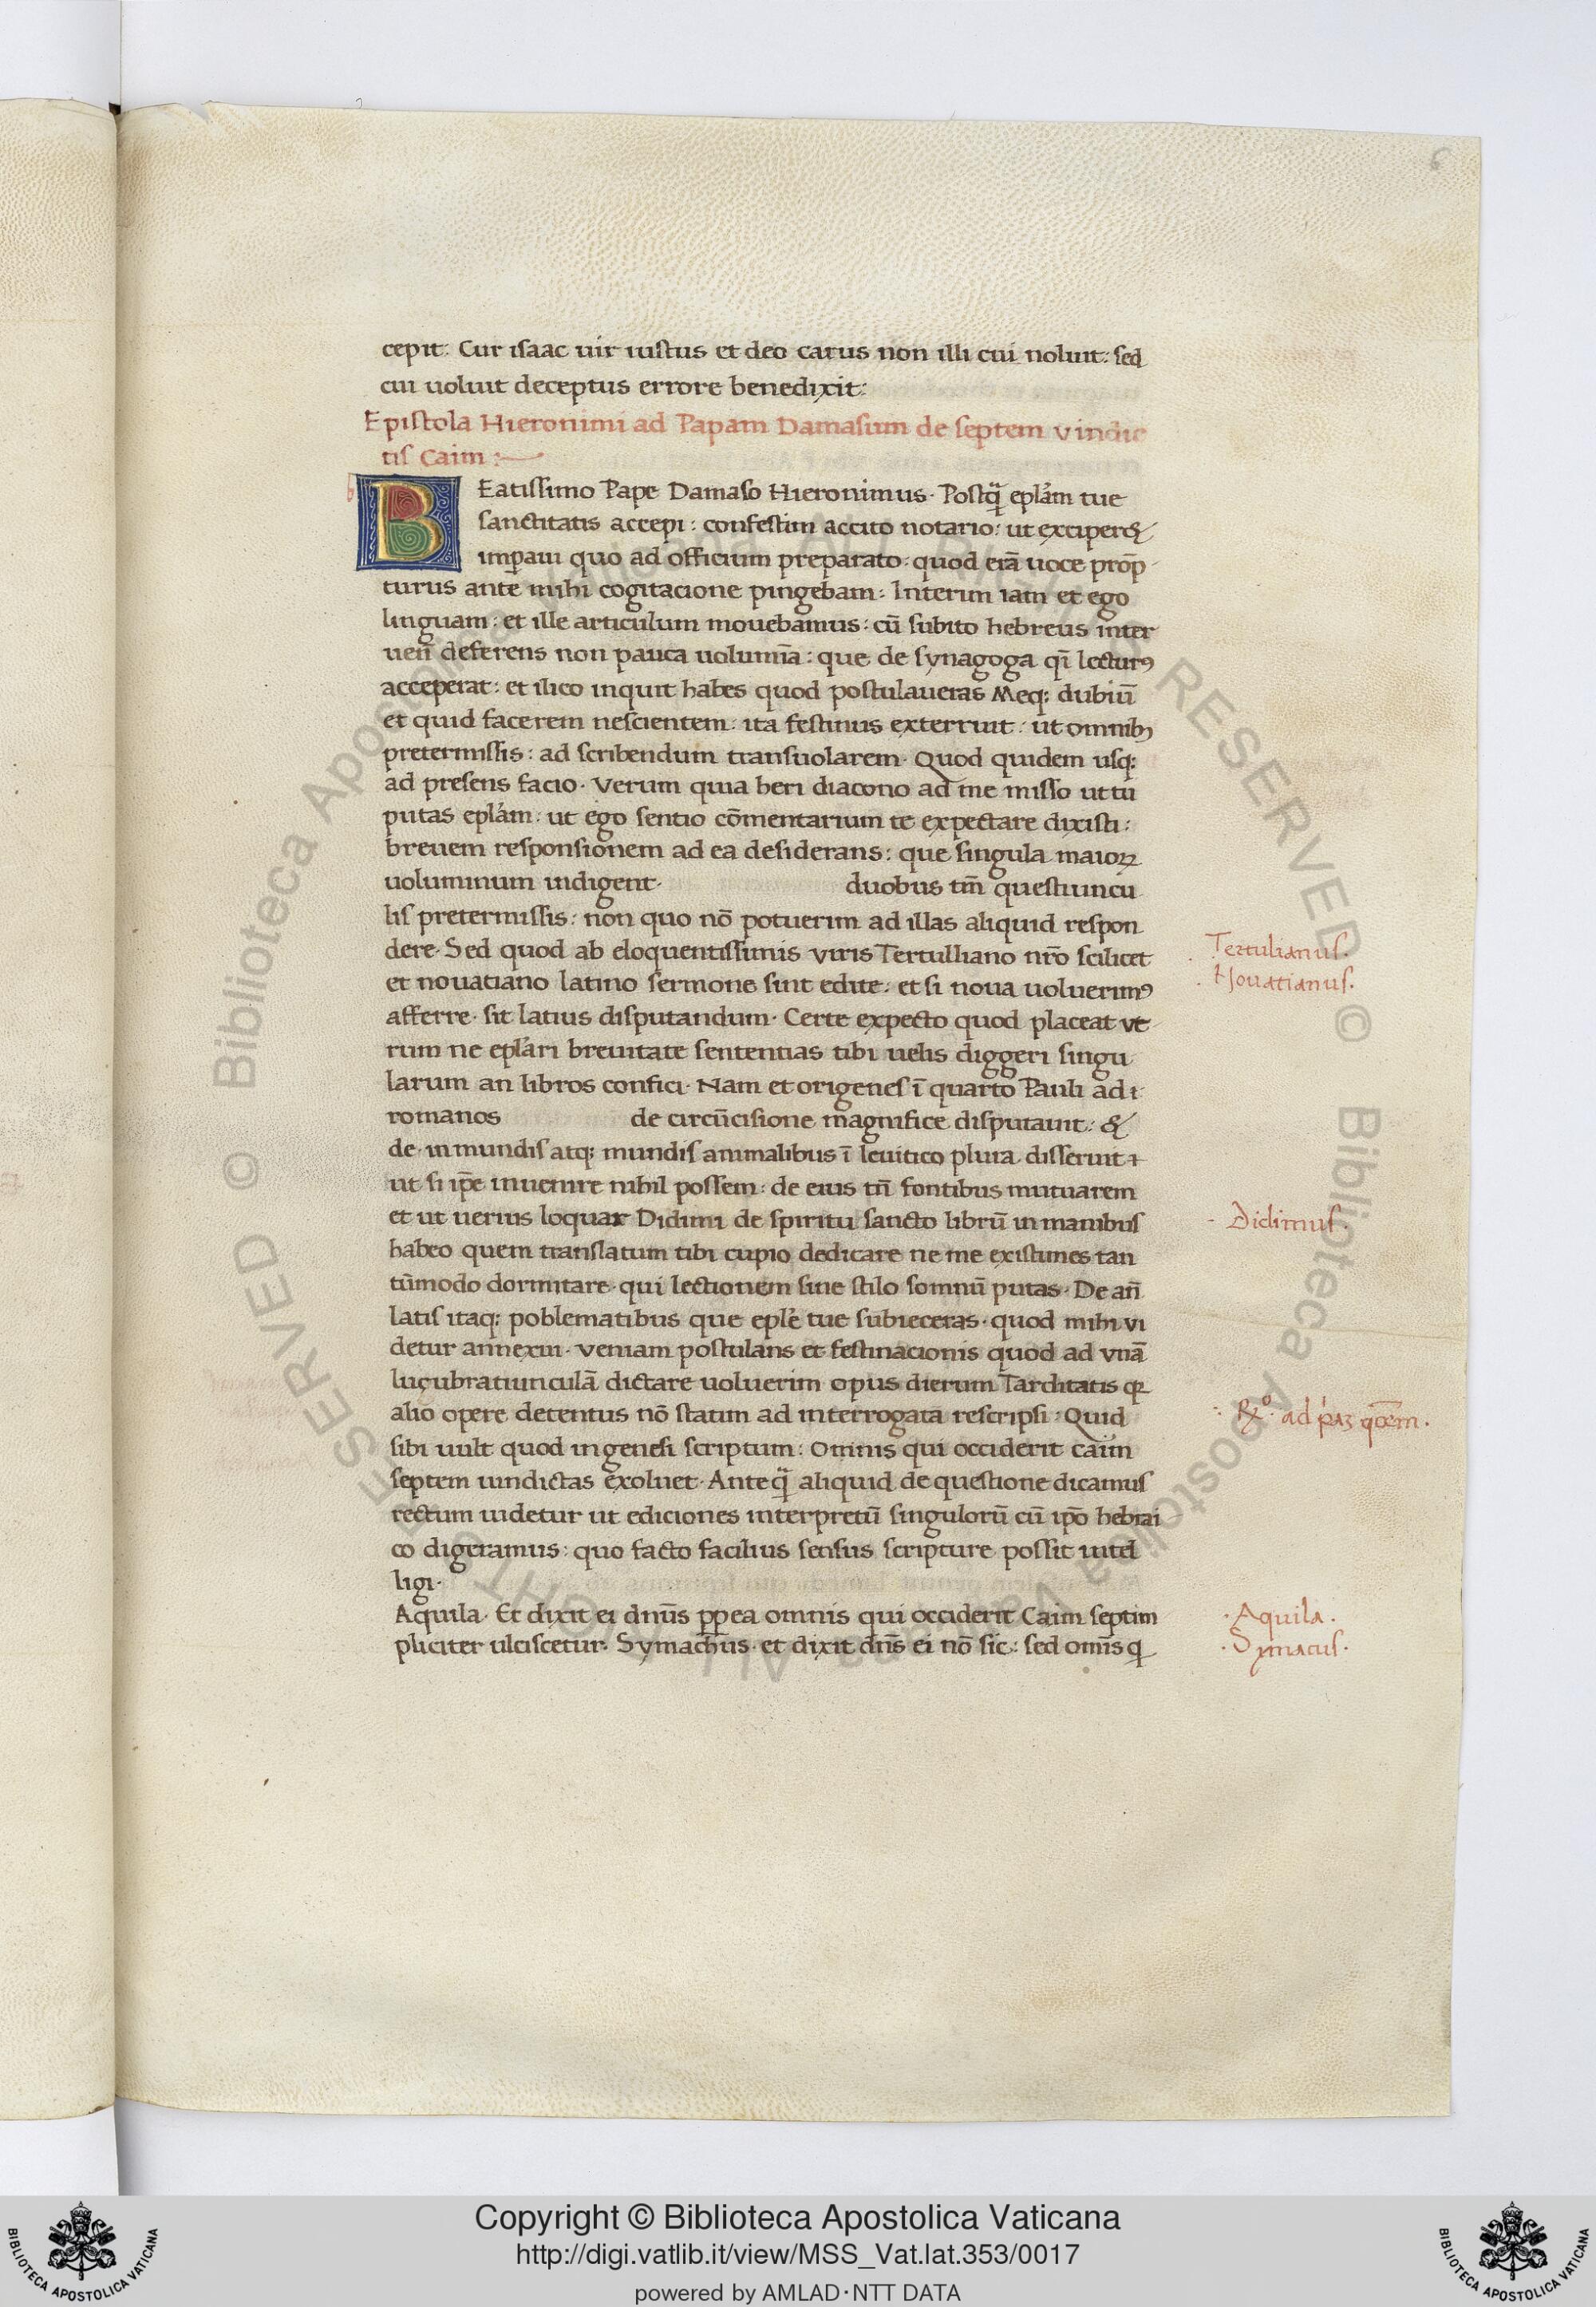 6
cepit: Cur isaac uir iustus et deo carus non illi cui noluit: sed
cui uoluit deceptus errore benedixit:
Epistola Hieronimi ad Papam Damasum de septem vindic
tis Caim :
BEatissimo Pape Damaso Hieronimus· Postq̄ȝ eplam tue
sanctitatis accepi: confestim accito notario: ut exciper&
imꝑaui quo ad officium preparato: quod erā uoce prōp
turus ante mihi cogitacione pingebam: Interim iam et ego
linguam: et ille articulum mouebamus: cū subito hebreus inter
ueñ deferens non pauca uolumīa: que de synagoga qı̄ lecturꝰ
acceperat: et ilico inquit habes quod postulaueras Meq; dubiū
et quid facerem nescientem: ita festinus exterruit: ut omnibꝫ
pretermissis: ad scribendum transuolarem· Quod quidem usq;
ad presens facio· Verum quia heri diacono ad me misso ut tu
putas eplam: ut ego sentio cōmentarium te expectare dixisti:
breuem responsionem ad ea desiderans: que singula maioꝝ
uoluminum indigent· duobus tm̄ questiuncu
lis pretermissis: non quo nō potuerim ad illas aliquid respon
dere· Sed quod ab eloquentissimis viris Tertulliano nr̄o scilicet
et nouatiano latino sermone sint edite: et si noua uoluerimꝰ
afferre· sit latius disputandum· Certe expecto quod placeat vt
rum ne eplari breuitate sententias tibi uelis diggeri singu
larum an libros confici· Nam et origenes ī quarto Pauli ad
romanos de circūcisione magnifice disputauit: &
de inmundis atq; mundis animalibus ī leuitico plura disseruit
ut si ip̄e inuenire nihil possem: de eius tn̄ fontibus mutuarem
et ut uerius loquar Didimi de spiritu sancto librū in manibus
habeo quem translatum tibi cupio dedicare ne me existimes tan
tūmodo dormitare· qui lectionem sine stilo somnū putas· De añ
latis itaq; poblematibus que eple tue subieceras· quod mihi vi
detur annexui· veniam postulans et festinacionis quod ad vnā
lucubratiunculā dictare uoluerim opus dierum Tarditatis qꝫ
alio opere detentus nō statim ad interrogata rescripsi: Quid
sibi uult quod in genesi scriptum: Omnis qui occiderit caim
septem uindictas exoluet· Ante q̄ȝ aliquid de questione dicamus
rectum uidetur ut ediciones interpretū singulorū cū ip̄o hebrai
co digeramus: quo facto facilius sensus scripture possit intel
ligi·
Aquila· Et dixit ei dn̄us ꝓpea omnis qui occiderit Caim septim
pliciter ulciscetur· Symachus· et dixit dn̄s ei nō sic: sed om̄s q̄
Tertulianus.
Nouatianus.
Didimus.
R̸º· ad p̱aȝ qōem.
·Aquila.
·Symacus·
Copyright © Biblioteca Apostolica Vaticana
http://digi.vatlib.it/view/MSS_Vat.lat.353/0017
powered by AMLAD·NTT DATA
BIBLIOTECA APOSTOLICA VATICANA
BIBLIOTECA APOSTOLICA VATICANA